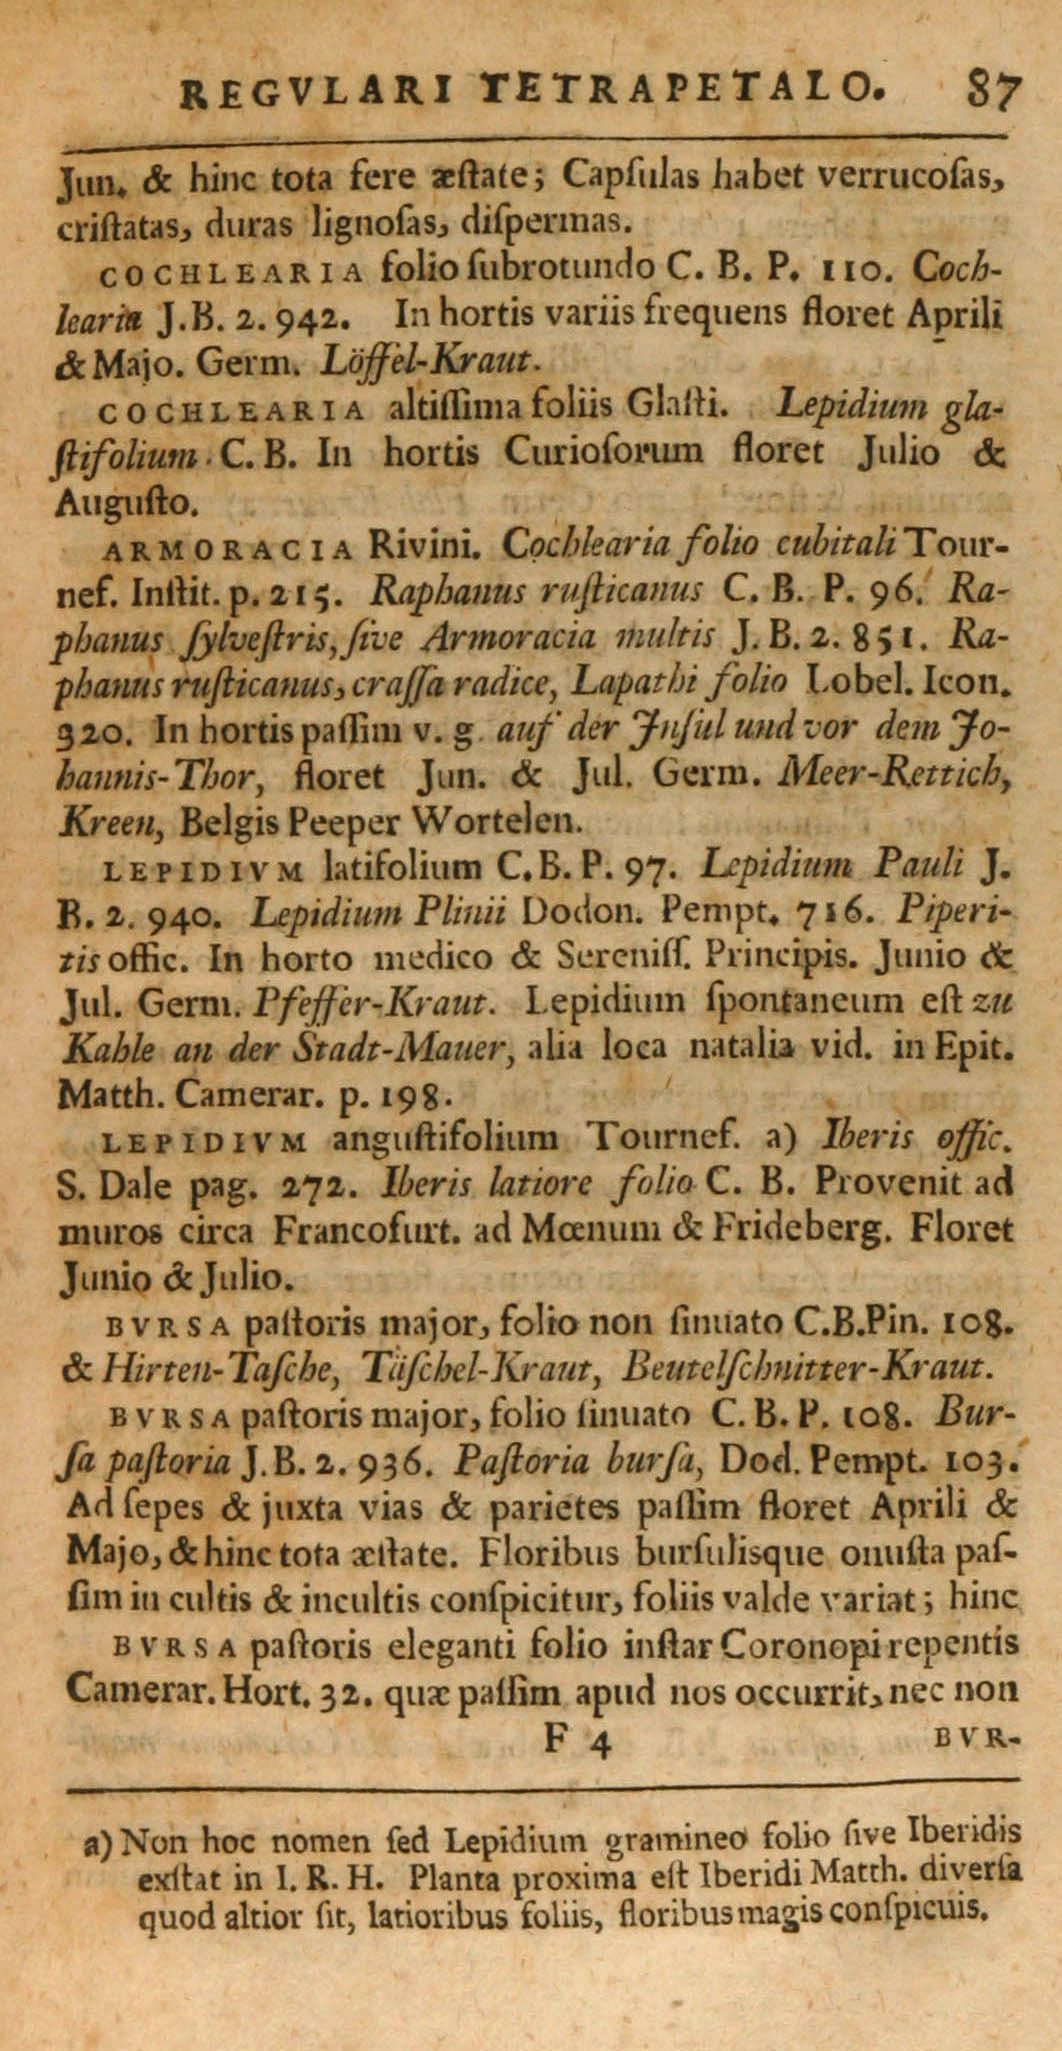 REGVLARI TETRAPETALO. 87
Jun. & hinc tota fere æſtate; Capſulas habet verrucoſas,
criſtatas, duras lignoſas, diſpermas.
COCHLEARIA folio ſubrotundo C. B. P. 110. Coch-
learia J.B. 2. 942. In hortis variis frequens floret Aprili
& Majo. Germ. Löffel-Kraut.
COCHLEARIA altiſſima foliis Glaſti. Lepidium gla-
ſtifolium. C. B. In hortis Curioſorum floret Julio &
Auguſto.
ARMORACIA Rivini. Cochlearia folio cubitali Tour-
nef. Inſtit. p. 215. Raphanus ruſticanus C. B. P. 96. Ra-
phanus ſylveſtris, ſive Armoracia multis J. B. 2. 851. Ra-
phanus ruſticanus, craſſa radice, Lapathi folio Lobel. Icon.
320. In hortis paſſim v. g. auf der Jnſul und vor dem Jo-
hannis-Thor, floret Jun. & Jul. Germ. Meer-Rettich,
Kreen, Belgis Peeper Wortelen.
LEPIDIVM latifolium C. B. P. 97. Lepidium Pauli J.
B. 2. 940. Lepidium Plinii Dodon. Pempt. 716. Piperi-
tis offic. In horto medico & Sereniſſ. Principis. Junio &
Jul. Germ. Pfeffer-Kraut. Lepidium ſpontaneum eſt zu
Kahle an der Stadt-Mauer, alia loca natalia vid. in Epit.
Matth. Camerar. p. 198.
LEPIDIVM anguſtifolium Tournef. a) Iberis offic.
S. Dale pag. 272. Iberis latiore folio C. B. Provenit ad
muros circa Francofurt. ad Mœnum & Frideberg. Floret
Junio & Julio.
BVRSA paſtoris major, folio non ſinuato C.B.Pin. 108.
& Hirten-Taſche, Täſchel-Kraut, Beutelſchnitter-Kraut.
BVRSA paſtoris major, folio ſinuato C. B. P. 108. Bur-
ſa paſtoria J. B. 2. 936. Paſtoria burſa, Dod. Pempt. 103.
Ad ſepes & juxta vias & parietes paſſim floret Aprili &
Majo, & hinc tota æſtate. Floribus burſulisque onuſta paſ-
ſim in cultis & incultis conſpicitur, foliis valde variat; hinc
BVRSA paſtoris eleganti folio inſtar Coronopi repentis
Camerar. Hort. 32. quæ paſſim apud nos occurrit, nec non
F 4 BVR-
a) Non hoc nomen ſed Lepidium gramineo folio ſive Iberidis
exſtat in I. R. H. Planta proxima eſt Iberidi Matth. diverſa
quod altior ſit, latioribus foliis, floribus magis conſpicuis.